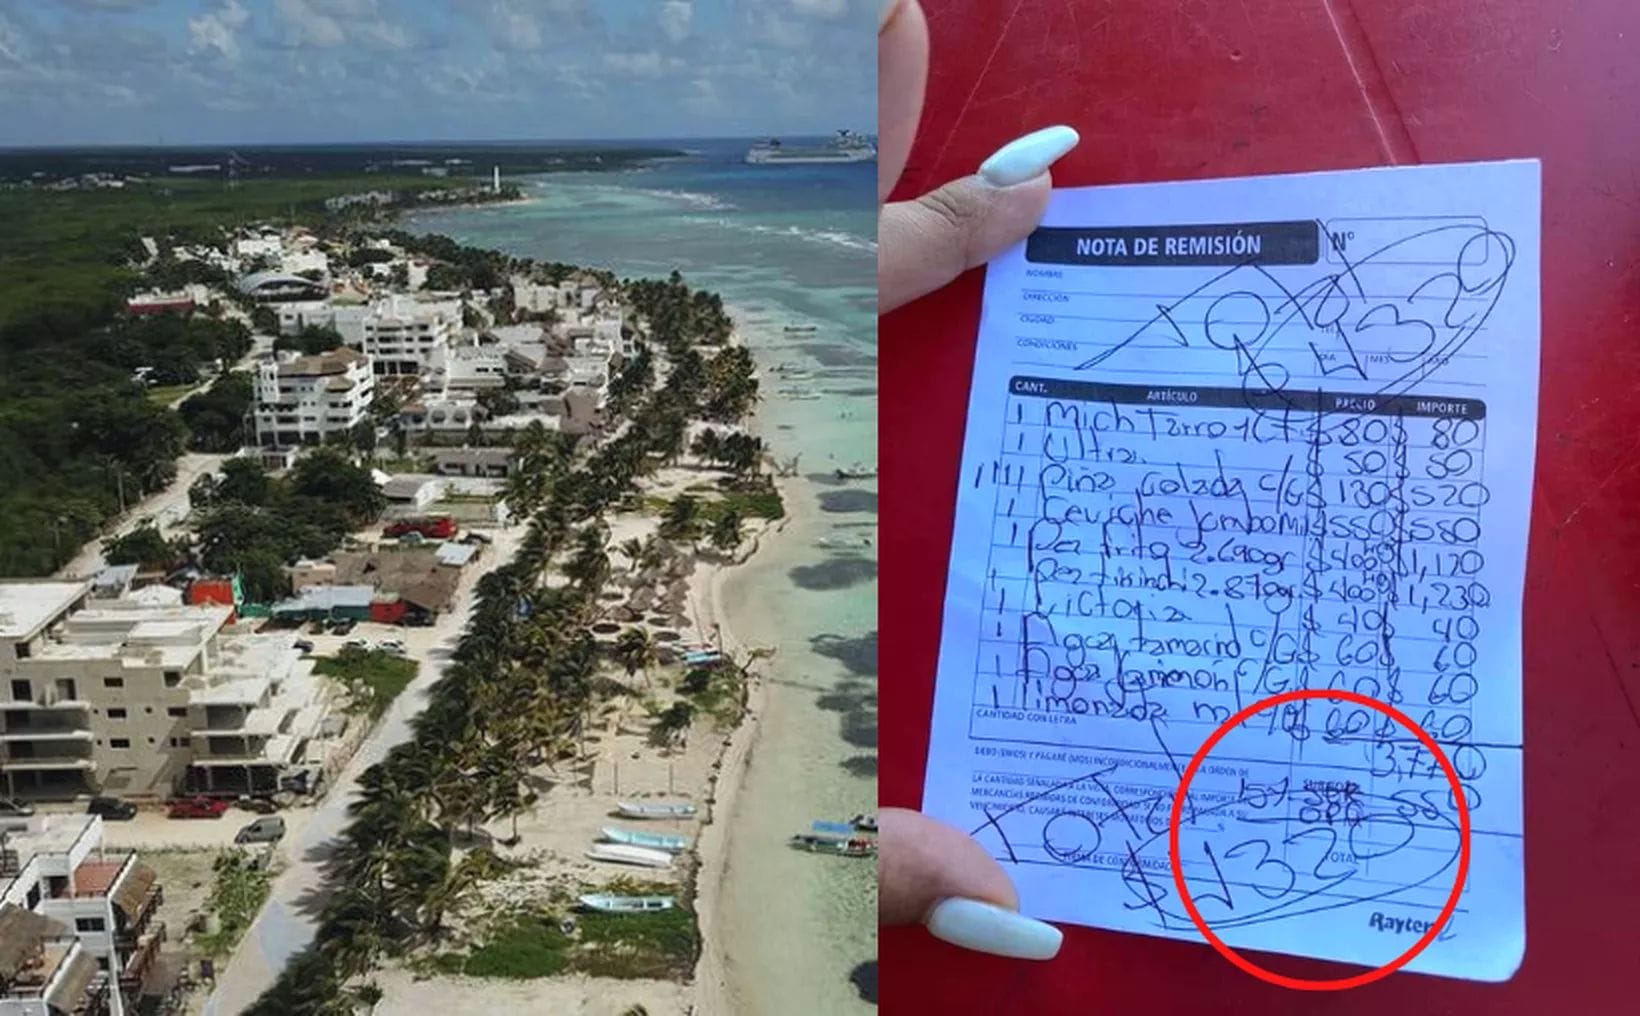 NOTA DE REMISIÓN
Nº
NOMBRE
DIRECCIÓN
CIUDAD
CONDICIONES
DIA MES AÑO
CANT. ARTÍCULO PRECIO IMPORTE
1 Mich Tarro $80 $80
1 Ultra $50 $50
1111 Piña Colada c/G $130 $520
1 Ceviche Jumbo $550 $550
1 Pez frito 2.690gr $1,170
1 Pez tikinchi 2.870gr $1,230
1 Victoria $40 $40
1 Agua tamarind c/G $60 $60
1 Agua c/G $60 $60
1 limonada $60 $60
CANTIDAD CON LETRA
3,770
DEBO (EMOS) Y PAGARÉ (MOS) INCONDICIONALMENTE A LA ORDEN DE
LA CANTIDAD SEÑALADA A LA VISTA, CORRESPONDIENTE AL IMPORTE
MERCANCÍAS RECIBIDAS DE CONFORMIDAD
VENCIMIENTO, CAUSARÁ INTERESES MORATORIOS %
15% 550
TOTAL
TOTAL
$4320
FIRMA DE CONFORMIDAD
Rayter